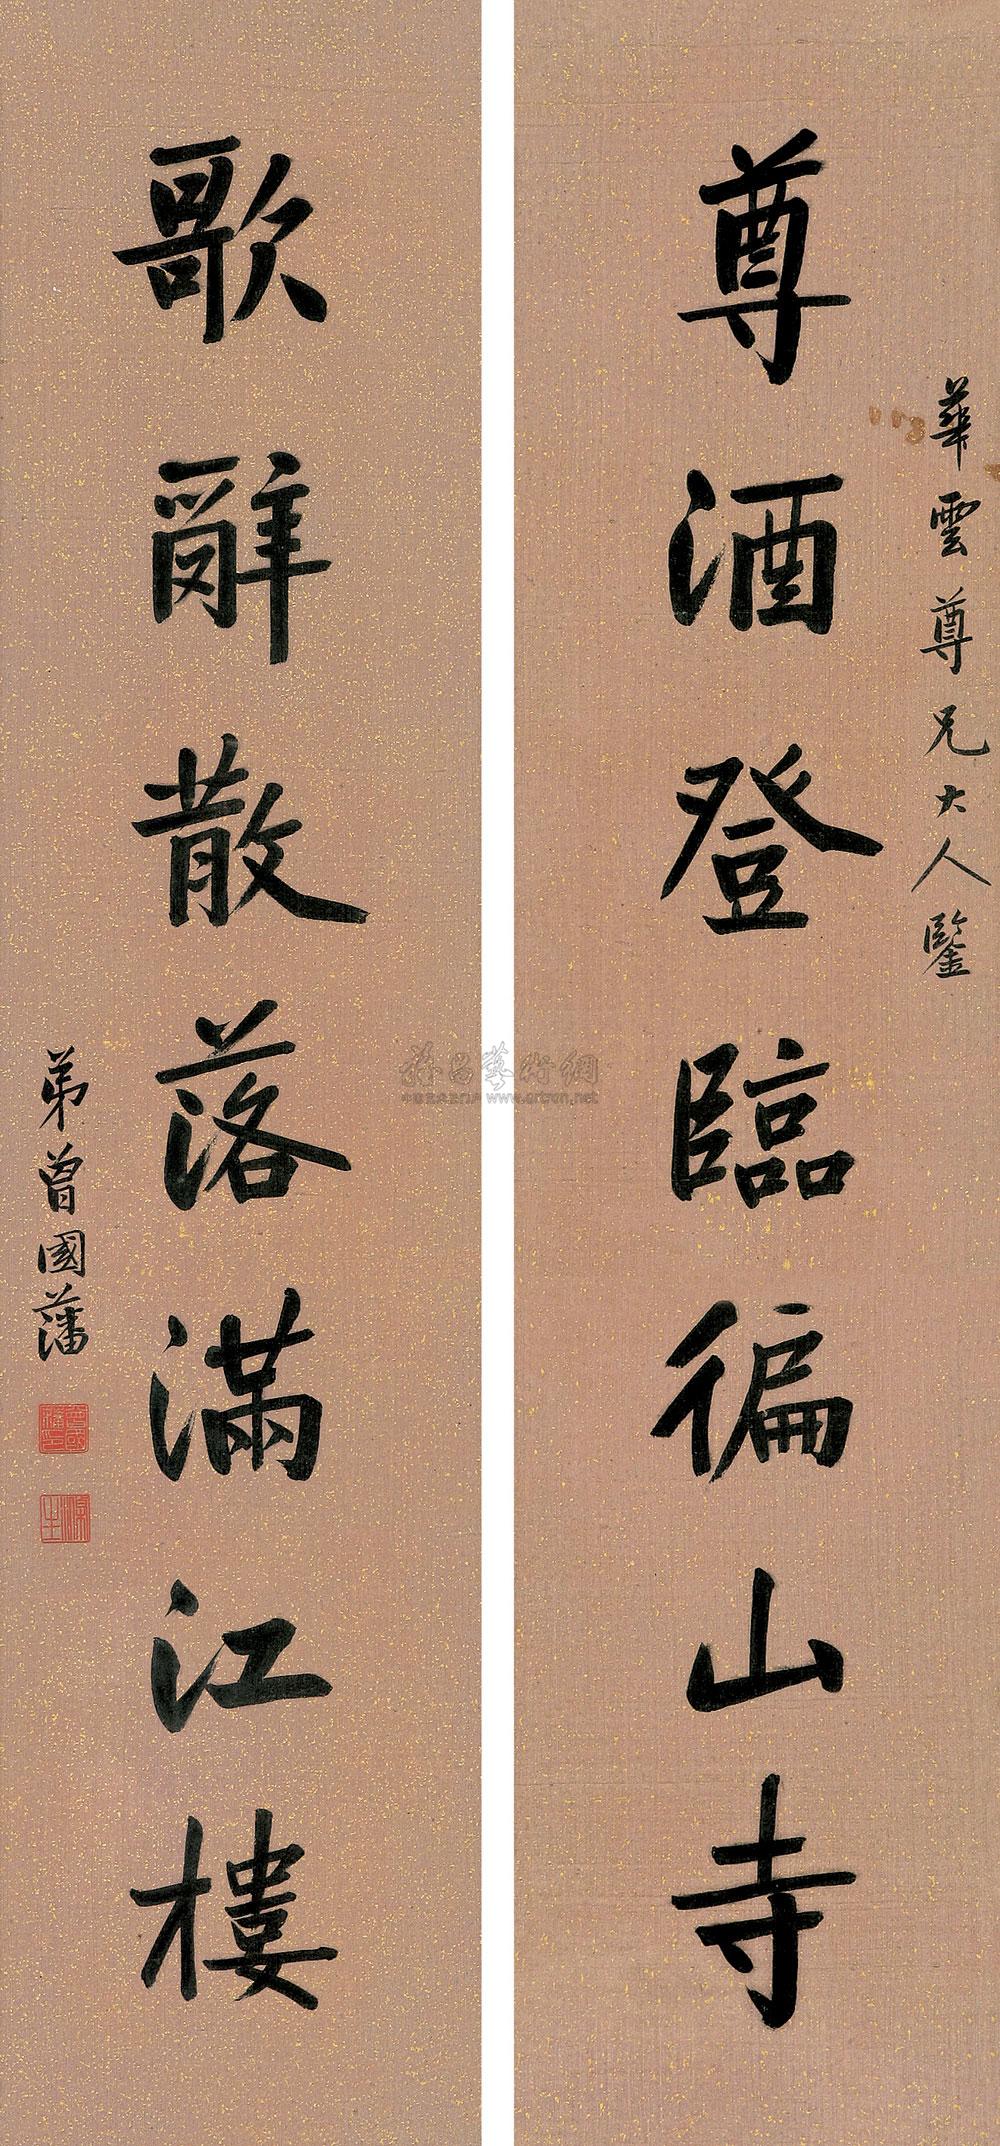 華雲尊兄大人鑒
尊酒登臨徧山寺
歌辭散落滿江樓
弟曾國藩
www.artron.net